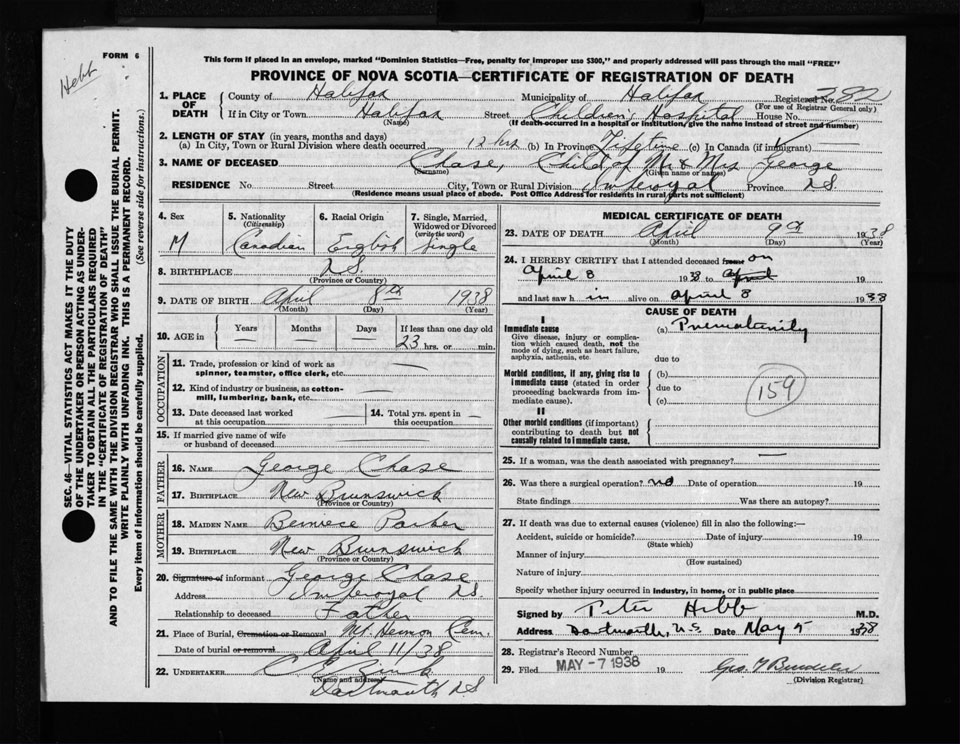 FORM 6
Hebb
This form if placed in an envelope, marked "Dominion Statistics—Free, penalty for improper use $300," and properly addressed will pass through the mail "FREE"
PROVINCE OF NOVA SCOTIA—CERTIFICATE OF REGISTRATION OF DEATH
SEC. 46—VITAL STATISTICS ACT MAKES IT THE DUTY
OF THE UNDERTAKER OR PERSON ACTING AS UNDER-
TAKER TO OBTAIN ALL THE PARTICULARS REQUIRED
IN THE "CERTIFICATE OF REGISTRATION OF DEATH"
AND TO FILE THE SAME WITH THE DIVISION REGISTRAR WHO SHALL ISSUE THE BURIAL PERMIT.
WRITE PLAINLY WITH UNFADING INK. THIS IS A PERMANENT RECORD.
Every item of information should be carefully supplied. (See reverse side for instructions.)
1. PLACE OF DEATH County of Halifax Municipality of Halifax Registered No. 382
(For use of Registrar General only)
If in City or Town Halifax Street Children's Hospital House No.
(Name) (If death occurred in a hospital or institution, give the name instead of street and number)
2. LENGTH OF STAY (in years, months and days)
(a) In City, Town or Rural Division where death occurred 12 hrs (b) In Province Lifetime (c) In Canada (if immigrant)
3. NAME OF DECEASED Chase, Child of Mr & Mrs George
(Surname) (Given name or names)
RESIDENCE No. Street City, Town or Rural Division Imperoyal Province N.S.
(Residence means usual place of abode. Post Office Address for residents in rural parts not sufficient)
4. Sex 5. Nationality (Citizenship) 6. Racial Origin 7. Single, Married, Widowed or Divorced (write the word)
M Canadian English Single
8. BIRTHPLACE N.S.
(Province or Country)
9. DATE OF BIRTH April 8th 1938
(Month) (Day) (Year)
10. AGE in Years Months Days If less than one day old
— — — 23 hrs. or min.
OCCUPATION
11. Trade, profession or kind of work as
spinner, teamster, office clerk, etc. —
12. Kind of industry or business, as cotton-
mill, lumbering, bank, etc. —
13. Date deceased last worked
at this occupation —
14. Total yrs. spent in
this occupation —
15. If married give name of wife
or husband of deceased —
FATHER
16. NAME George Chase
17. BIRTHPLACE New Brunswick
(Province or Country)
MOTHER
18. MAIDEN NAME Berniece Parker
19. BIRTHPLACE New Brunswick
(Province or Country)
20. Signature of informant George Chase
Address Imperoyal N.S.
Relationship to deceased Father
21. Place of Burial, Cremation or Removal Mt. Hermon Cem.
Date of burial or removal April 11/38
22. UNDERTAKER C E Zink
(Name and address)
Dartmouth N.S.
MEDICAL CERTIFICATE OF DEATH
23. DATE OF DEATH April 9th 1938
(Month) (Day) (Year)
24. I HEREBY CERTIFY that I attended deceased from on
April 8 1938 to April 19
and last saw h im alive on April 8 1938
CAUSE OF DEATH
I
Immediate cause
Give disease, injury or complica-
tion which caused death, not the
mode of dying, such as heart failure,
asphyxia, asthenia, etc.
(a) Prematurity
due to
Morbid conditions, if any, giving rise to
immediate cause (stated in order
proceeding backwards from im-
mediate cause).
(b)
due to
(c)
159
II
Other morbid conditions (if important)
contributing to death but not
causally related to immediate cause.
25. If a woman, was the death associated with pregnancy? —
26. Was there a surgical operation? no Date of operation 19
State findings Was there an autopsy?
27. If death was due to external causes (violence) fill in also the following:—
Accident, suicide or homicide? Date of injury 19
(State which)
Manner of injury
(How sustained)
Nature of injury
Specify whether injury occurred in industry, in home, or in public place
Signed by Peter Hebb M.D.
Address Dartmouth, N.S. Date May 5 1938
28. Registrar's Record Number
29. Filed MAY -7 1938 19 Geo.
(Division Registrar)